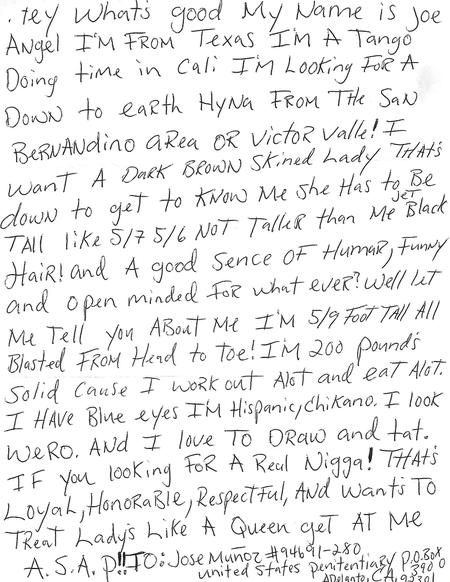 . Hey What's good My Name is Joe
Angel I'M FROM Texas I'M A Tango
Doing time in Cali I'M Looking FOR A
Down to earth HyNA FROM THe SaN
BeRNANdino aRea OR VictoR Valle! I
want A DaRK BROWN SKined Lady THAt's
down to get to KNOW Me SHe Has to Be
TAll like 5/7 5/6 NOT TalleR than Me Jet Black
HaiR! and A good Sence OF HumaR, Funny
and open minded FOR what eveR? Well let
Me Tell you ABout Me I'M 5/9 Foot Tall All
Blasted FROM Head to Toe! I'M 200 pound's
Solid Cause I woRK out Alot and eat Alot.
I HAVe Blue eyes I'M Hispanic, CHiKano. I look
WeRO. AND I love TO DRaw and tat.
IF you looking FoR A Real Nigga! THAt's
Loyal, HonoRaBle, Respectful, AND Want's TO
TReat Lady's Like A Queen get AT Me
A. S. A. p!! TO: Jose Muñoz #94691-280
united States penitentiaRy P.O. Box
3900
Adelanto, CA. 92301